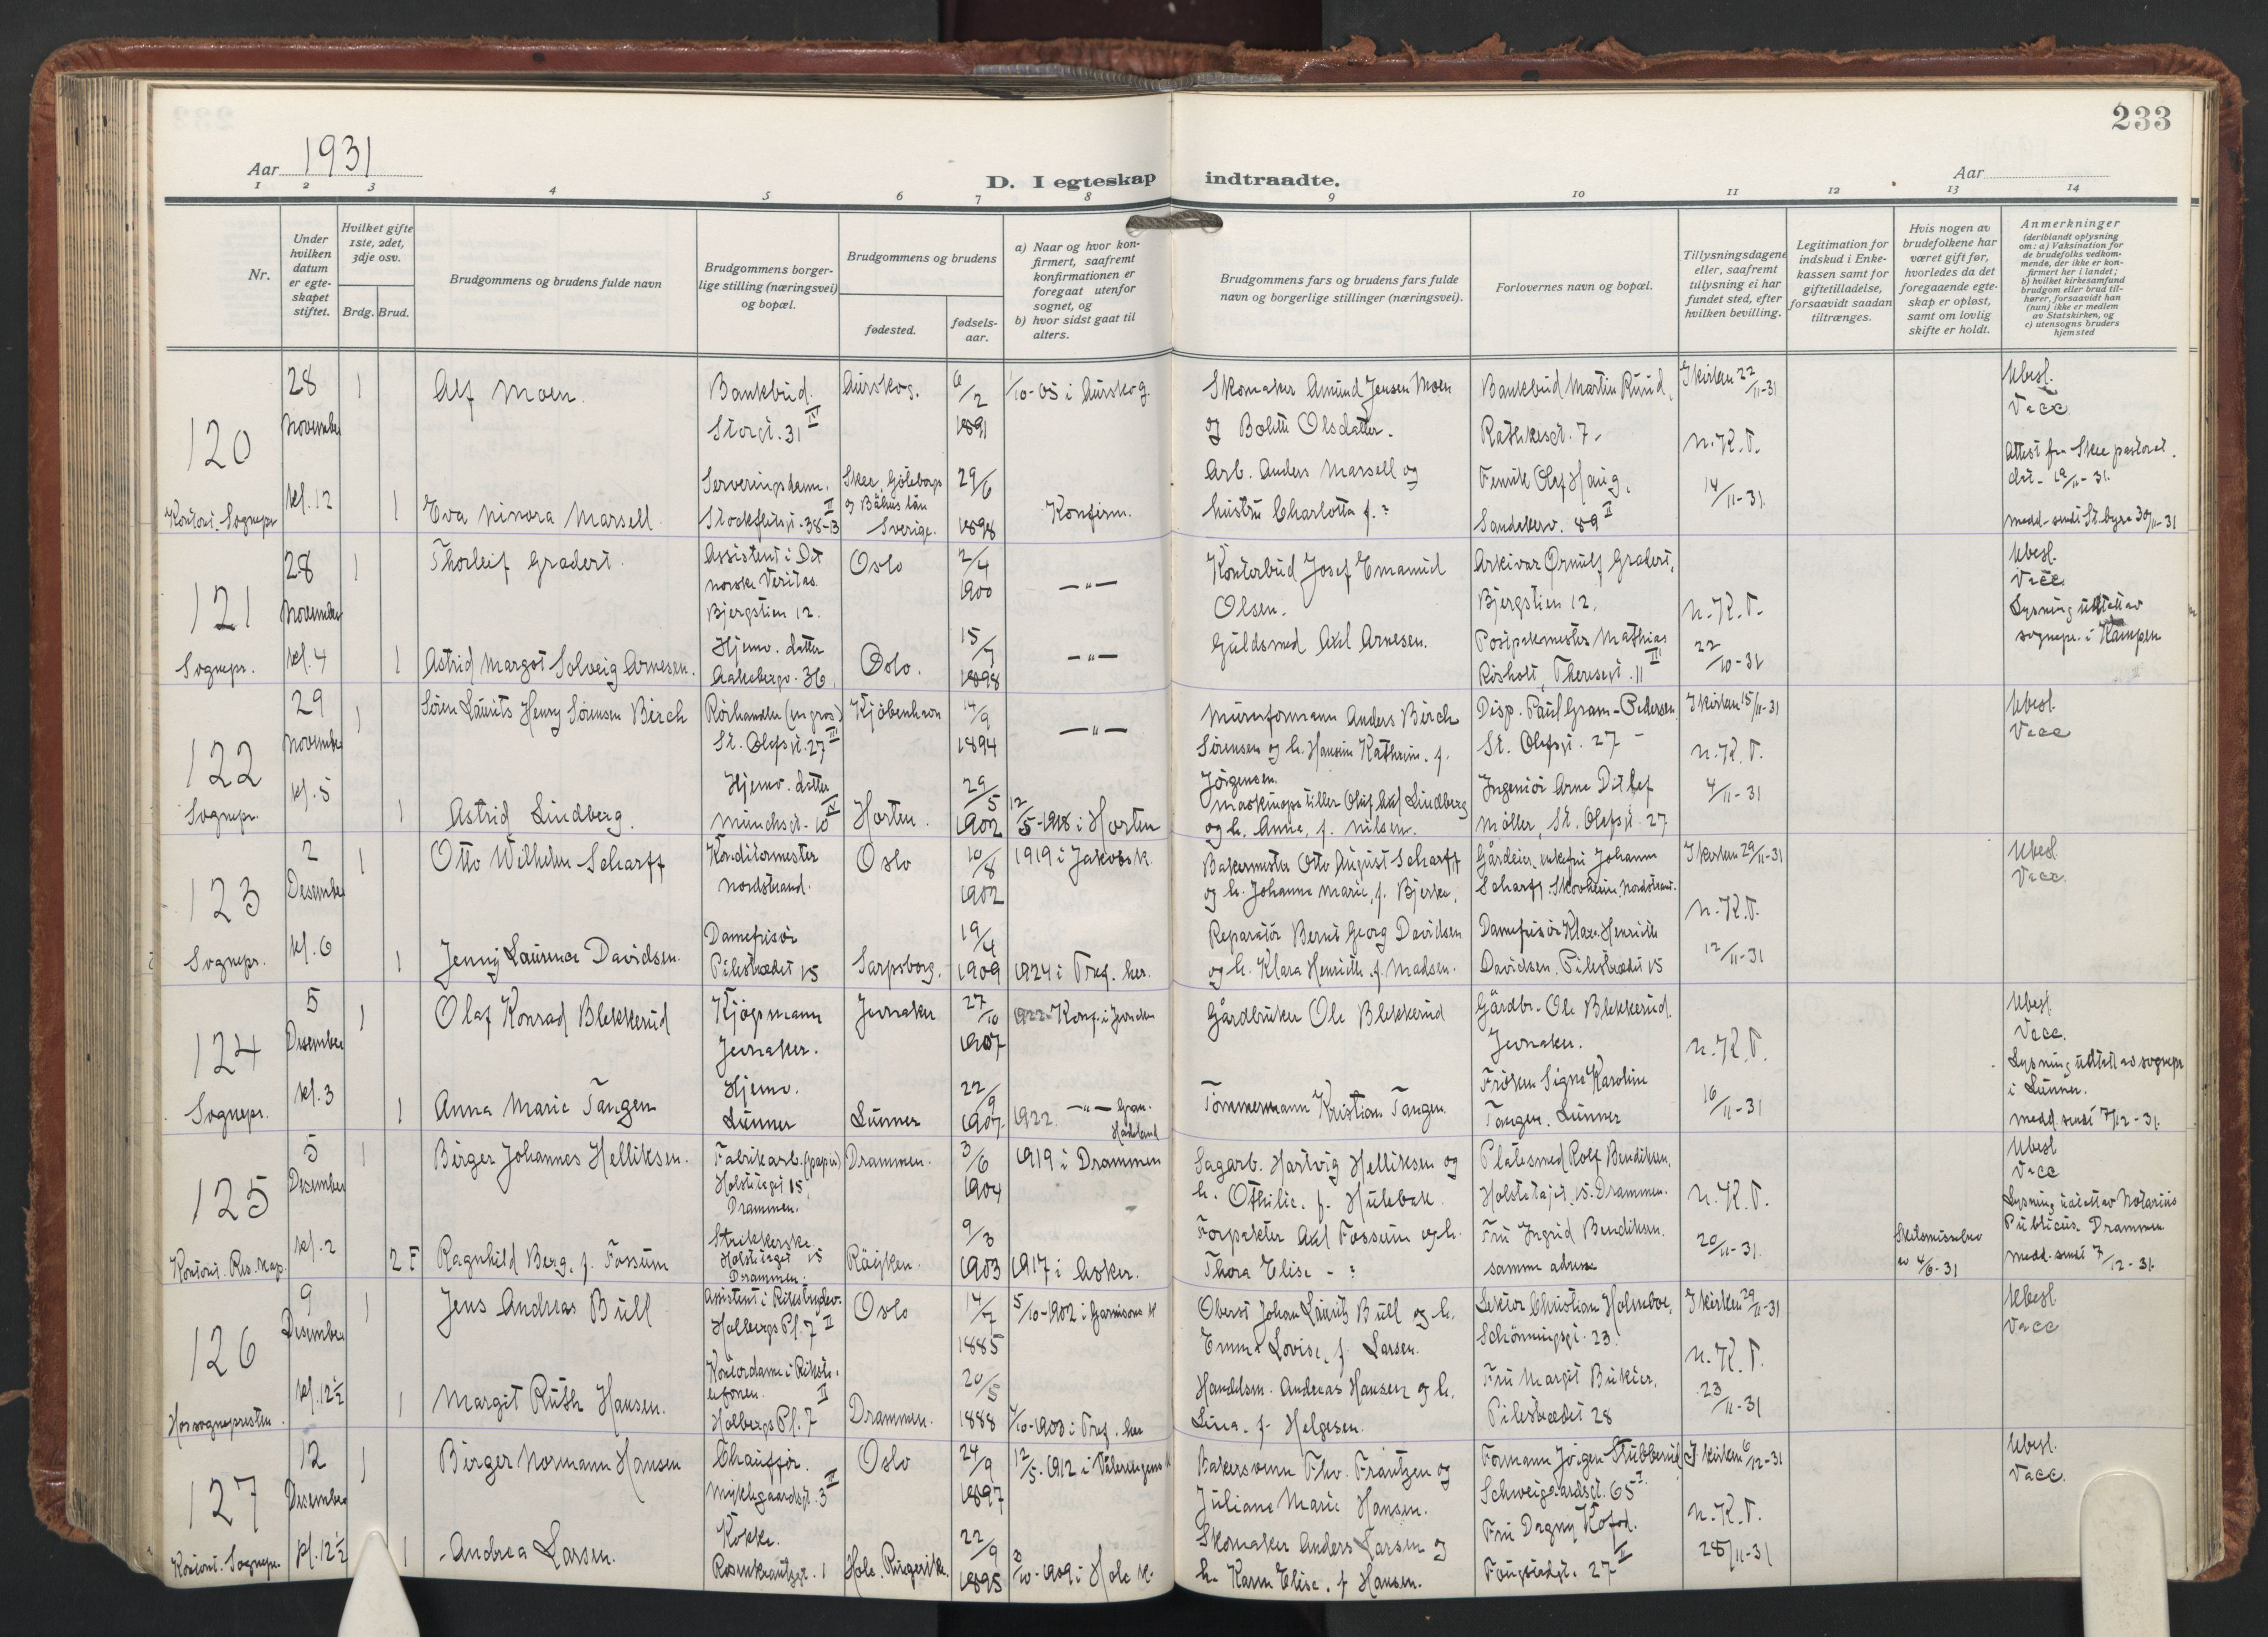 233
Aar 1931
D. I egteskap indtraadte.
Aar
1 2 3 4 5 6 7 8 9 10 11 12 13 14
Nr.
Under hvilken datum er egteskapet stiftet.
Hvilket gifte 1ste, 2det, 3dje osv.
Brdg. Brud.
Brudgommens og brudens fulde navn
Brudgommens borgerlige stilling (næringsvei) og bopæl.
Brudgommens og brudens
fødested.
fødselsaar.
a) Naar og hvor konfirmert, saafremt konfirmationen er foregaat utenfor sognet, og
b) hvor sidst gaat til alters.
Brudgommens fars og brudens fars fulde navn og borgerlige stillinger (næringsvei).
Forlovernes navn og bopæl.
Tillysningsdagene eller, saafremt tillysning ei har fundet sted, efter hvilken bevilling.
Legitimation for indskud i Enkekassen samt for giftetilladelse, forsaavidt saadan tiltrænges.
Hvis nogen av brudefolkene har været gift før, hvorledes da det foregaaende egteskap er opløst, samt om lovlig skifte er holdt.
Anmerkninger
(deriblandt oplysning om: a) Vaksination for de brudefolks vedkommende, der ikke er konfirmert her i landet; b) hvilket kirkesamfund brudgom eller brud tilhører, forsaavidt han (hun) ikke er medlem av Statskirken, og c) utensogns bruders hjemsted
120
Kontoret. Sognepr.
28 November kl. 12
1
Alf Moen.
Bankbud. Storgt. 31 IV
Aurskog.
6/2 1891
1/10-05 i Aurskog.
Skomaker Amund Jensen Moen
og Bolette Olsdatter.
Bankbud Martin Ruud,
Rathkesgt. 7.
I kirken 22/11-31
n.K.T.
14/11-31
Ubesl.
Vacc
Attest fra Skee pastorat.
dat. 19/11-31.
1
Eva Ninora Marsell.
Serveringsdame.
Stockfletsgt. 38-B II
Skee, Göteborgs
og Bähus län
Sverige.
29/6 1898
Konfirm.
Arb. Anders Marsell og
hustru Charlotta f. ?
Fenrik Olaf Haug,
Sandakerv. 89 II
medd. sendt St. byrå 30/11-31
121
Sognepr.
28 November kl. 4
1
Thorleif Gradert.
Assistent i Det
norske Veritas.
Bjergstien 12.
Oslo
2/4 1900
— " —
Kontorbud Josef Emanuel
Olsen.
Arkivar Ørnulf Gradert,
Bjergstien 12,
n.K.T.
22/10-31
Ubesl.
Vacc
Lysning utstett av
sognepr. i Kampen
1
Astrid Margot Solveig Arnesen.
Hjemv. datter
Aakebergv. 36,
Oslo.
15/7 1898
— " —
Guldsmed Axel Arnesen.
Postpakmester Mathias
Røsholt, Theresegt. 11 III
122
Sognepr.
29 November kl. 5
1
Søren Laurits Henry Sørensen Birch
Rørhandler (en gros)
St. Olafsgt. 27 III
Kjöbenhavn
14/9 1894
— " —
Murerformann Anders Birch
Sørensen og h. Hansine Kathrine, f.
Jörgensen.
Disp. Paul Gram-Pedersen
St. Olafsgt. 27
I kirken 15/11-31
n.K.T.
4/11-31
Ubesl.
Vacc
1
Astrid Lindberg.
Hjemv. datter
Munchsgt. 10 IV
Horten.
29/5 1902
12/5-1918 i Horten
Maskinopstiller Oluf Axel Lindberg
og h. Anna, f. Nilsen.
Ingeniör Arne Ditlef
Möller, St. Olafsgt. 27
123
Sognepr.
2 Desember kl. 6
1
Otto Wilhelm Scharff
Konditormester
Nordstrand.
Oslo
10/8 1902
1919 i Jakobs k.
Bakermester Otto August Scharff
og h. Johanne Marie, f. Bjerke.
Gårdeier, enkefru Johanne
Scharff, Skovheim, Nordstrand.
I kirken 29/11-31
n.K.T.
12/11-31
Ubesl.
Vacc.
1
Jenny Laurence Davidsen.
Damefrisör
Pilestrædet 15
Sarpsborg.
19/4 1909
1924 i Tref. her.
Reparatör Bernt Georg Davidsen
og h. Klara Henriette, f. Madsen.
Damefrisör Klara Henriette
Davidsen, Pilestrædet 15
124
Sognepr.
5 Desember kl. 3
1
Olaf Konrad Blekkerud
Kjöpmann
Jevnaker.
Jevnaker
27/10 1907
1922. Konf. i Jevnaker
Gårdbruker Ole Blekkerud
Gårdbr. Ole Blekkerud.
Jevnaker.
n.K.T.
16/11-31
Ubesl.
Vacc.
Lysning utstett av sognepr.
i Lunner.
medd. sendt 7/12-31.
1
Anna Marie Tangen
Hjemv.
Lunner
Lunner
22/9 1907
1922. — " — Gran.
Hadeland
Tömmermann Kristian Tangen.
Fröken Signe Karoline
Tangen. Lunner
125
Kontoret. Res. kap.
5 Desember kl. 2
1
Birger Johannes Helliksen.
Fabrikarb. (papir)
Holstetaget 15,
Drammen.
Drammen.
3/6 1904
1919 i Drammen
Sagarb. Hartvig Helliksen og
h. Othilie, f. Hulebak.
Platesmed Rolf Bendiksen,
Holstetaget 15. Drammen.
n.K.T.
20/11-31.
Ubesl
Vacc
Lysning utstett av Notarius
Publicus. Drammen
medd. sendt 7/12-31.
2 F
Ragnhild Berg, f. Fossum
Strikkerske.
Holstetaget 15
Drammen.
Röyken.
9/3 1903
1917 i Asker.
Forpakter Axel Fossum og h.
Thora Elise - ?
Fru Ingrid Bendiksen.
samme adresse
av 4/6-31
126
Hos sognepresten.
9 Desember kl. 12½
1
Jens Andreas Bull
Assistent i Rikstrudev.
Holbergs Pl. 7 II
Oslo
14/7 1885
5/10-1902 i Garnisons k
Oberst Johan Lauritz Bull og h.
Emma Lovise, f. Larsen.
Lektor Christian Holmboe,
Schönningsgt. 23.
I kirken 29/11-31
n.K.T.
23/11-31
Ubesl.
Vacc
1
Margit Ruth Hansen.
Kontordame i Rikste-
lefonen.
Holbergs Pl. 7 II
Drammen.
20/5 1888
4/10-1903 i Tref. her
Handelsm. Andreas Hansen og h.
Lina, f. Helgesen.
Fru Margit Bukier,
Pilestrædet 28
127
Kontoret. Sognepr.
12 Desember kl. 12½
1
Birger Normann Hansen
Chauffør.
Myklegaardsgt. 3 II
Oslo
24/9 1897
12/5-1912 i Vålerengens k
Bakersvenn Thv. Frantzen og
Juliane Marie Hansen.
Formann Jörgen Stubberud
Schweigaardsgt. 65 I
I kirken 6/12-31
n.K.T.
28/11-31
Ubesl.
Vacc.
1
Andrea Larsen.
Kokke.
Rosenkrantzgt. 1
Hole. Ringerike.
22/9 1895
3/10-1909 i Hole k.
Skomaker Anders Larsen og
h. Karen Elise, f. Hansen.
Fru Dagny Kofod.
Fougstadgt. 27 II